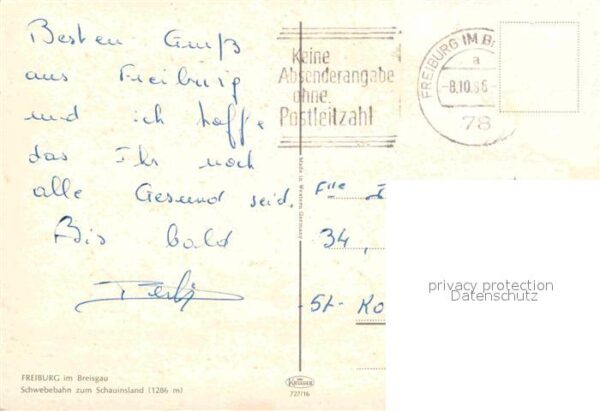 Besten Gruß
aus Freiburg
und ich hoffe
das Ihr noch
alle Gesund seid.
Bis bald
Keine
Absenderangabe
ohne
Postleitzahl
FREIBURG IM B
a
-8.10.66-
78
Made in Western Germany
Flle
34,
St- Ko
privacy protection
Datenschutz
FREIBURG im Breisgau
Schwebebahn zum Schauinsland (1286 m)
KRÜGER
727/16